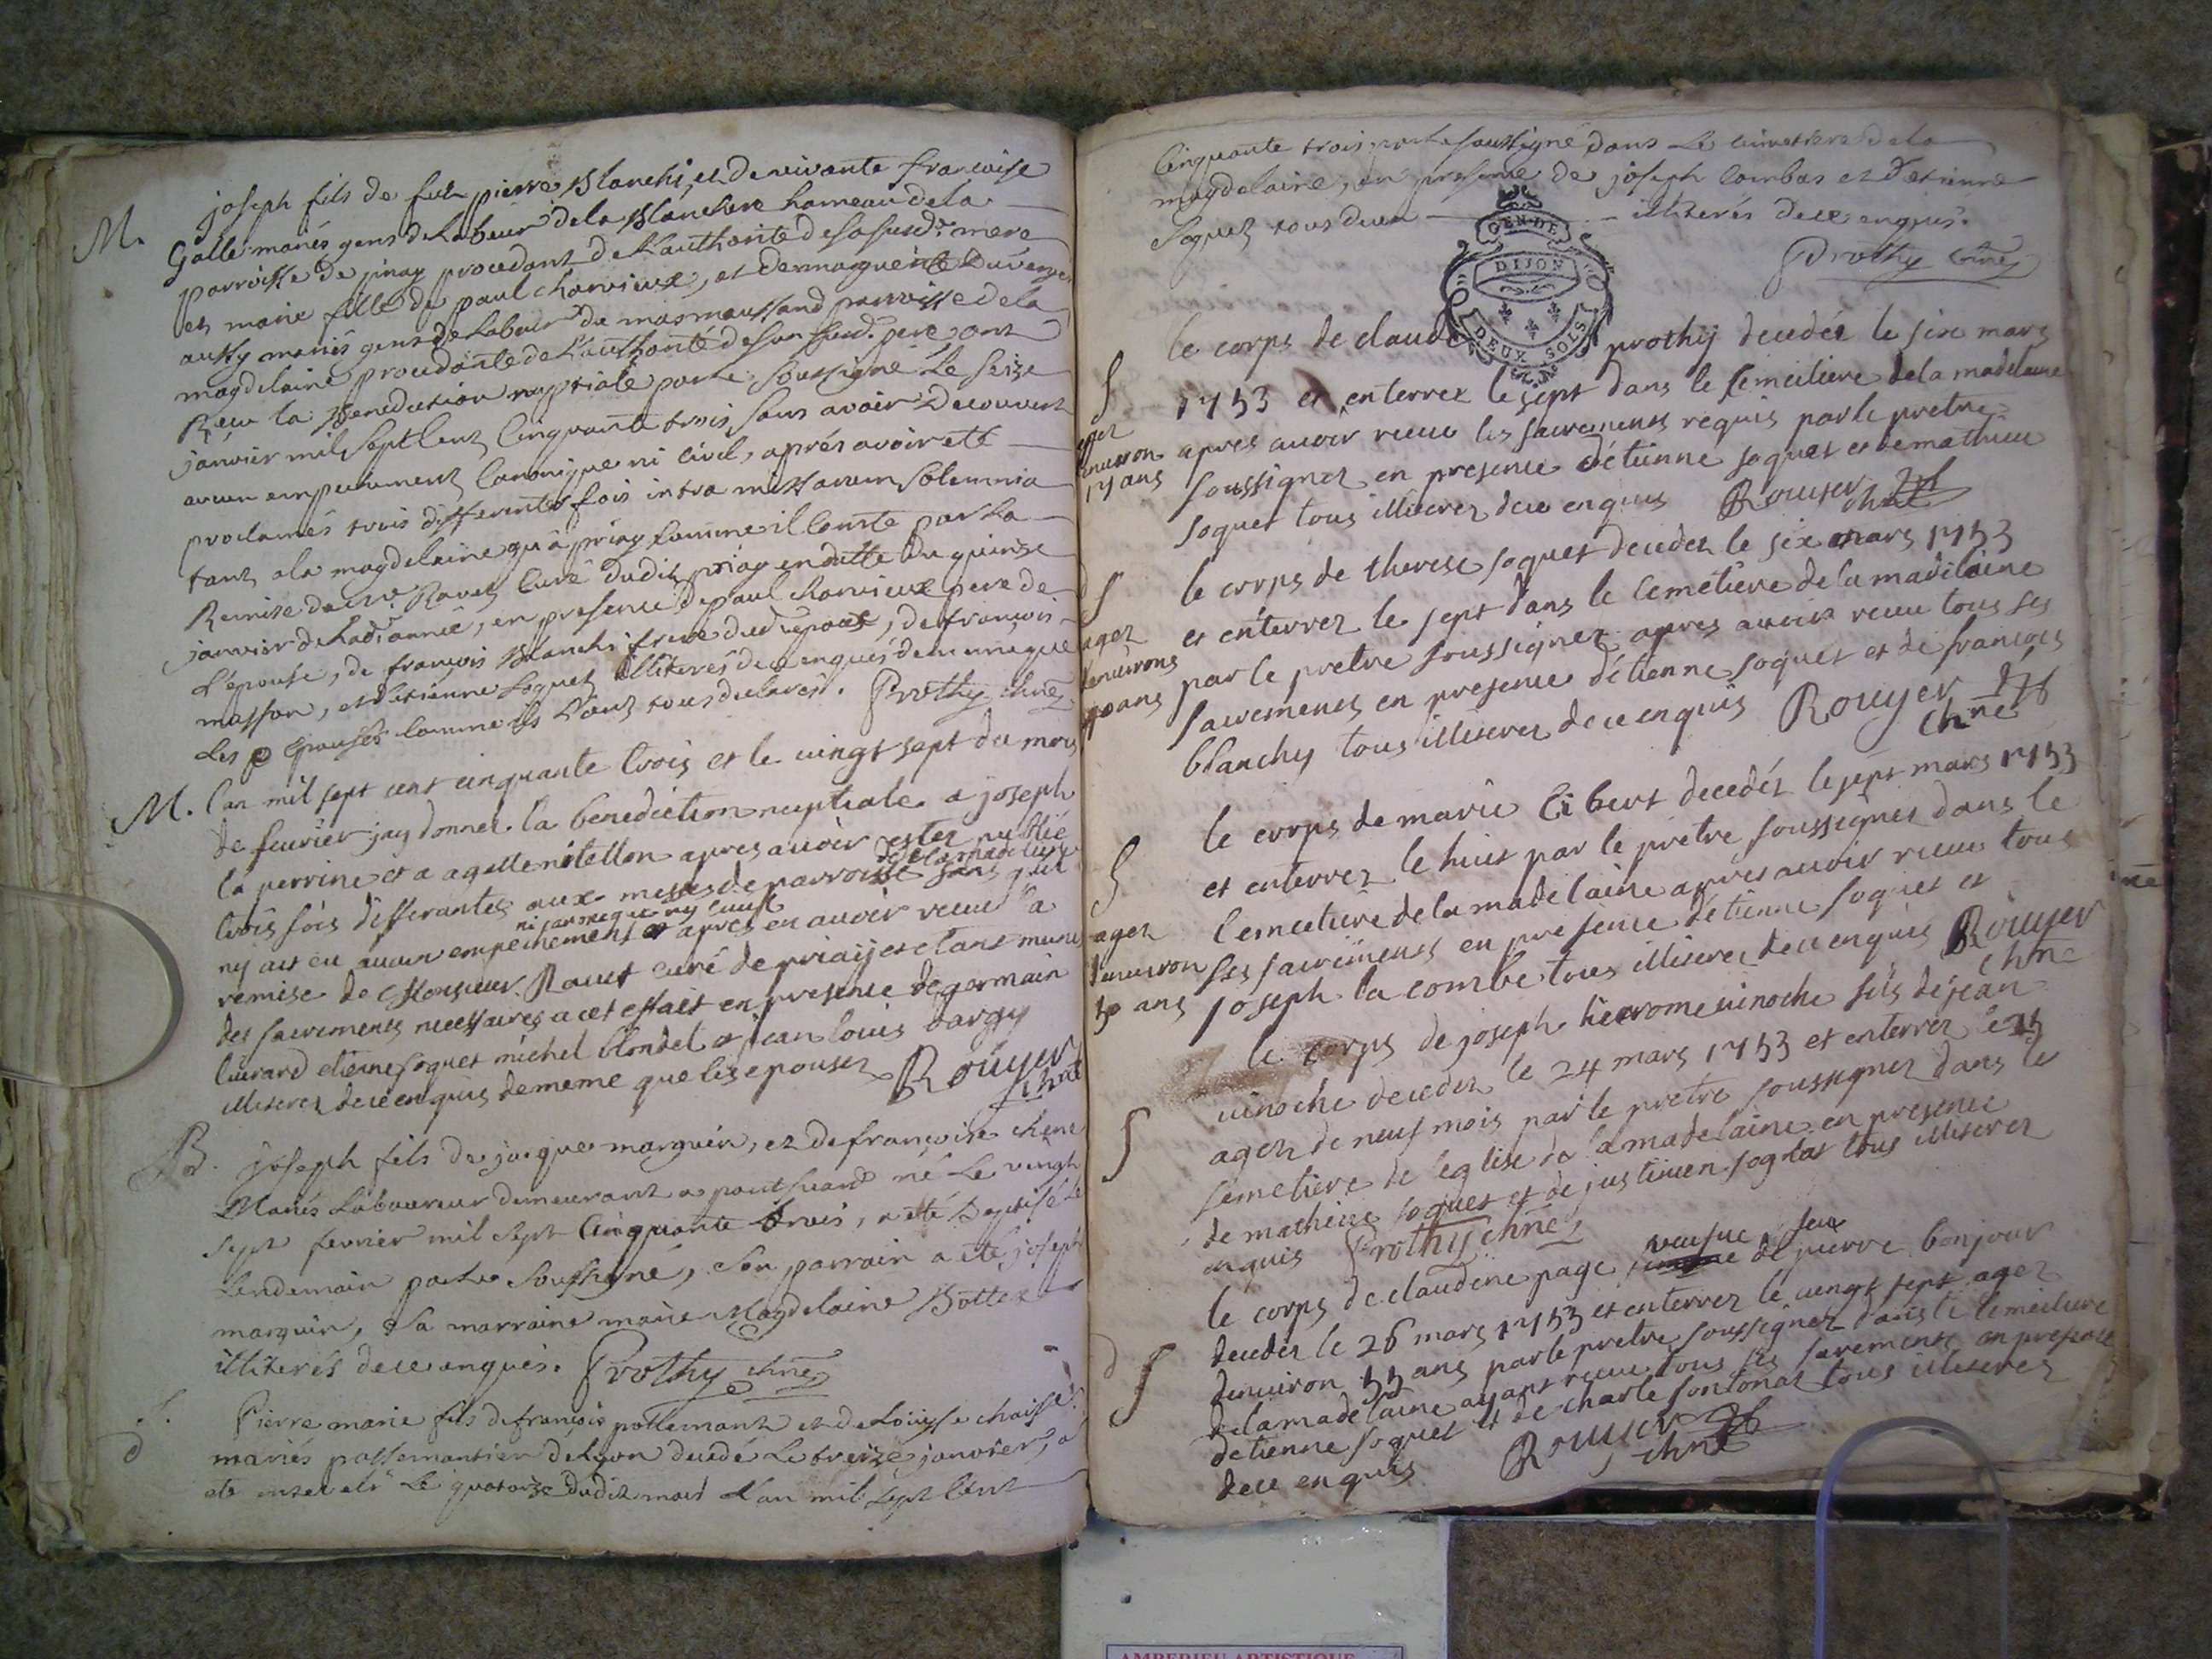 M.
joseph fils de feu pierre Blanchi, et de vivante francoise
Gallé mariés gens de Labeur de la Blanchere hameau de la
parroisse de priay procedant de L'authorité de sa susd.e mere
et marie fille de paul charvieux, et de marguerite
aussy mariés gens de Labeur du parroisse de la
magdelaine procedante de L'authorité de son susd.t pere, ont
Reçu la Benediction nuptiale par le soussigné Le seize
janvier mil sept cent Cinquante trois sans avoir decouvert
aucun empechement Canonique ni civil, aprés avoir eté
proclamés trois differentes fois intra missarum solemnia
tant a la magdelaine qu'a priay comme il Conste par La
Remise de mr Ravet Curé dudit priay en datte du quinze
janvier de Ladt année, en presence de paul charvieux pere de
L'épouse, de françois Blanchi frere dud. époux, de françois
masson, et d'etienne soquet illiterés de ce enquis de meme que
Les epouses comme ils L'ont tous declarés. Prothy chne
M. l'an mil sept cent cinquante trois et le vingt sept du mois
de feurier jay donner la benediction nuptiale a joseph
la perrine et a apres avoir estez publié
trois fois differantes aux messes de parroisse de la madelaine sans quil
ny ait eu aucun empechement ni canonique ny civil et apres en auoir receu la
remise de Monsieur Rauet curé de priaij et etant munis
des sacrements necessaires a cet effait en presence de germain
liurard etienne soquet michel blondel et jean louis
illiterez de ce enquis de meme que les epousez Rouyer
chne
B. joseph fils de jacque marguin, et de françoise chene
Mariés Laboureur demeurant a né Le vingt
sept fevrier mil sept Cinquante trois, a eté Baptisé Le
Lendemain par Le soussigné, son parrain a eté joseph
marguin, sa marraine marie Magdelaine Bottex
illiterés de ce enquis. Prothy chne
S. Pierre marie fils de françois et de Loüise
d mariés passemantier de Lyon decedé Le treize janvier, a
eté Le quatorze dudit mois L'an mil sept Cent
Cinquante trois par Le soussigné dans Le cimetiere de la
magdelaine, en presence de joseph Combas et d'etienne
soquet tous deux illiterés de ce enquis.
Prothy chne
GEN. DE
DIJON
DEUX SOLS
le corps de claude prothy decedéz le six mars
S
1753 et enterrez le sept dans le semetiere de la madelaine
agez
denuiron apres auoir receu les sacrements requis par le pretre
ans soussignez en presence d'etienne soquet et de mathieu
soquet tous illiterez de ce enquis Rouyer
chne
le corps de therese soquet decedez le six mars 1753
S
et enterrez le sept dans le cemetiere de la madelaine
agez
denuirons par le pretre soussignez apres auoir receu tous ses
ans sacrements en presence d'etienne soquet et de francois
blanchy tous illiterez de ce enquis Rouyer
chne
le corps de marie libert decedéz le sept mars 1753
S et enterrez le huit par le pretre soussignez dans le
agez cemetiere de la madelaine apres auoir receu tous
denuiron ses sacrements en presence d'etienne soquet et
ans joseph la combe tous illiterez de ce enquis Rouyer
chne
le corps de joseph hierome uinoche fils de jean
uinoche decedez le 24 mars 1753 et enterrez le 25
S agez de neuf mois par le pretre soussignez dans le
semetiere de leglise de la madelaine en presence
de mathieu soquet et de justinien tous illiterez
enquis Prothy chne
le corps de claudine page veufue feu de pierre bonjour
d S decedez le 26 mars 1753 et enterrez le uingt sept agez
denuiron 55 ans par le pretre soussignez dans le cemetiere
de la madelaine ayant receu tous ses sacrements en presence
detienne soquet et de charle fontonat tous illiterez
de ce enquis Rouyer
chne
AMBERIEU ARTISTIQUE